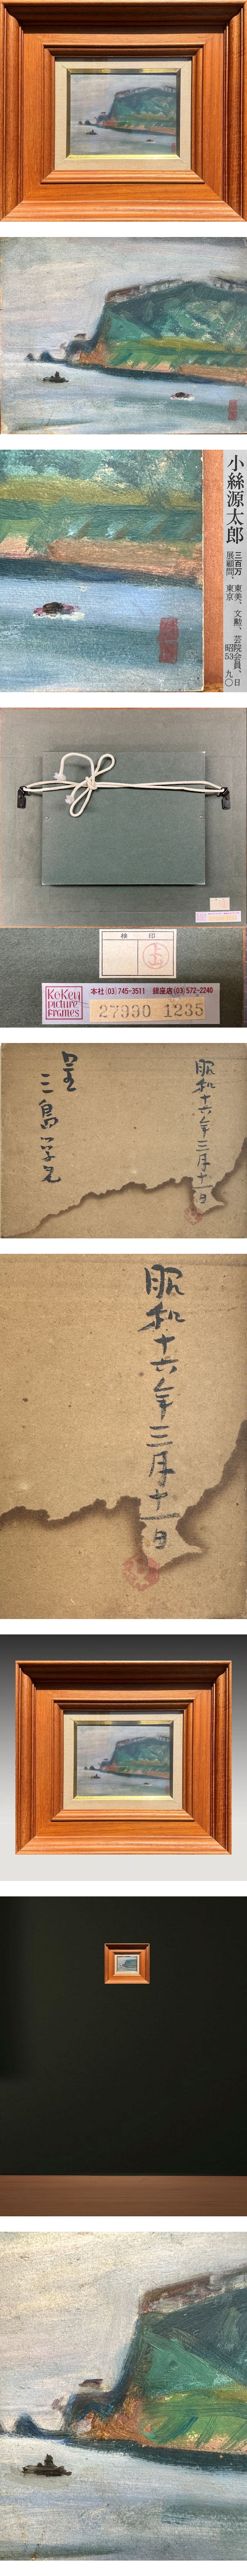 小絲源太郎
三百万
東美、文勲、芸院会員、日
展顧問、東京
昭53
九〇
検 印
KoKeN
picture
FRAMES
本社(03)745-3511 銀座店(03)572-2240
27990 1235
昭和十六年三月十一日
呈
三島学兄
昭和十六年三月十一日